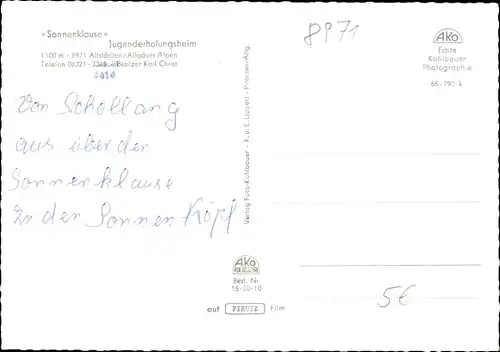 »Sonnenklause«
Jugenderholungsheim
1100 m - 8971 Altstädten/Allgäuer Alpen
Telefon 08321 - Besitzer Karl Christ
4614
Von Schollang
aus über den
Sonnenklause
zu den Sonnen Köpf
8971
AKo
Echte
Kohlbauer
Photographie
66-792 k
Verlag Foto-Kohlbauer - R. u. E. Lippert - Pfronten/Allg.
AKo
Best. Nr.
15-20-10
auf PERUTZ Film
5€